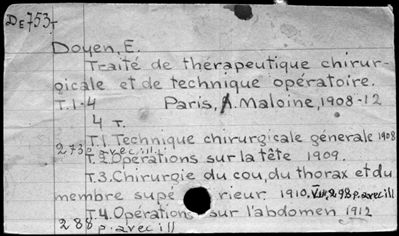 DE753T
Doyen, E.
Traité de thérapeutique chirur-
gicale et de technique opératoire.
T.1-4 Paris, A. Maloine, 1908-12
4 T.
T.1. Technique chirurgicale générale 1908
273 p. avec ill.
T.2. Opérations sur la tête 1909.
T.3. Chirurgie du cou, du thorax et du
membre supérieur. 1910. VII, 298 p. avec ill
T.4. Opérations sur l'abdomen 1912
288 p. avec ill